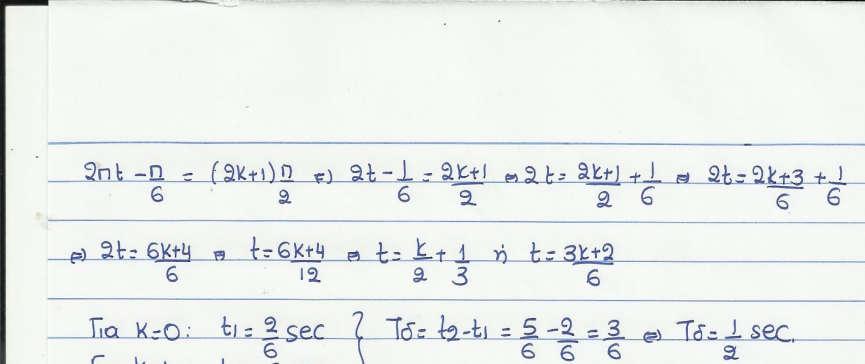 2πt - π/6 = (2k+1)π/2 ⇔ 2t - 1/6 = 2k+1/2 ⇔ 2t = 2k+1/2 + 1/6 ⇔ 2t = 2k+3/6 + 1/6
⇔ 2t = 6k+4/6 ⇔ t = 6k+4/12 ⇔ t = k/2 + 1/3 ή t = 3k+2/6
Για k=0: t1 = 2/6 sec } Tδ = t2-t1 = 5/6 - 2/6 = 3/6 ⇔ Tδ = 1/2 sec.